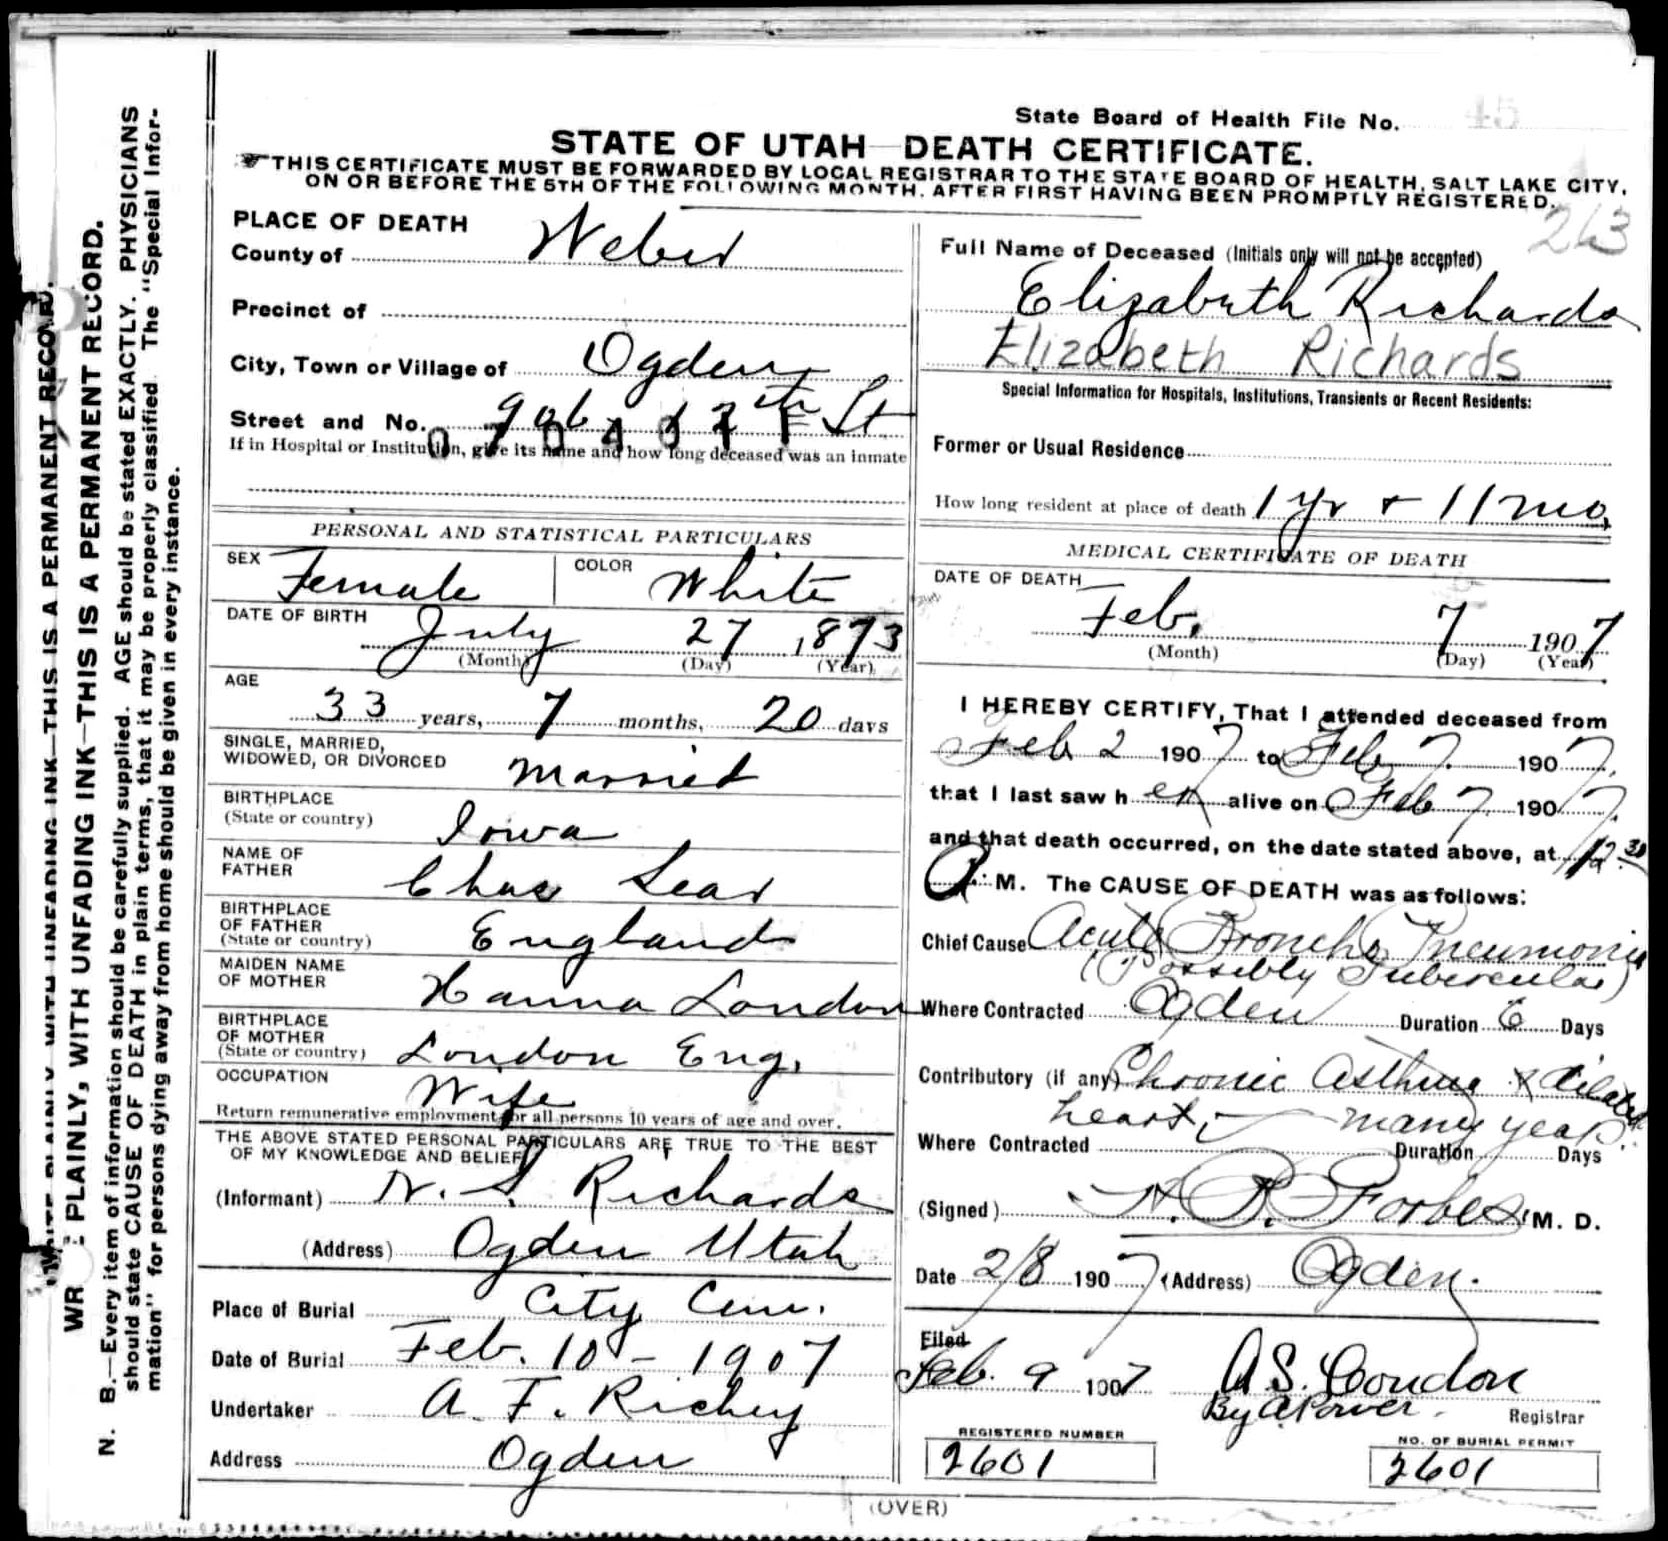 State Board of Health File No. 45
STATE OF UTAH—DEATH CERTIFICATE.
THIS CERTIFICATE MUST BE FORWARDED BY LOCAL REGISTRAR TO THE STATE BOARD OF HEALTH, SALT LAKE CITY,
ON OR BEFORE THE 5TH OF THE FOLLOWING MONTH, AFTER FIRST HAVING BEEN PROMPTLY REGISTERED.
263
WRITE PLAINLY WITH UNFADING INK—THIS IS A PERMANENT RECORD.
PLAINLY, WITH UNFADING INK—THIS IS A PERMANENT RECORD.
N. B.—Every item of information should be carefully supplied. AGE should be stated EXACTLY. PHYSICIANS
should state CAUSE OF DEATH in plain terms, that it may be properly classified. The "Special Infor-
mation" for persons dying away from home should be given in every instance.
PLACE OF DEATH
County of Weber
Precinct of
City, Town or Village of Ogden
Street and No. 906 12th St
If in Hospital or Institution, give its name and how long deceased was an inmate
PERSONAL AND STATISTICAL PARTICULARS
SEX Female COLOR White
DATE OF BIRTH July 27 1873
(Month) (Day) (Year)
AGE
33 years, 7 months, 20 days
SINGLE, MARRIED,
WIDOWED, OR DIVORCED Married
BIRTHPLACE
(State or country) Iowa
NAME OF
FATHER Chas Lear
BIRTHPLACE
OF FATHER
(State or country) England
MAIDEN NAME
OF MOTHER Hanna London
BIRTHPLACE
OF MOTHER
(State or country) London Eng.
OCCUPATION Wife
Return remunerative employment for all persons 10 years of age and over.
THE ABOVE STATED PERSONAL PARTICULARS ARE TRUE TO THE BEST
OF MY KNOWLEDGE AND BELIEF
(Informant) N. S. Richards
(Address) Ogden Utah
Place of Burial City Cem.
Date of Burial Feb. 10 - 1907
Undertaker A. F. Richey
Address Ogden
Full Name of Deceased (Initials only will not be accepted)
Elizabeth Richards
Elizabeth Richards
Special Information for Hospitals, Institutions, Transients or Recent Residents:
Former or Usual Residence
How long resident at place of death 1 yr + 11 mo.
MEDICAL CERTIFICATE OF DEATH
DATE OF DEATH
Feb. 7 1907
(Month) (Day) (Year)
I HEREBY CERTIFY, That I attended deceased from
Feb 2 1907 to Feb 7 1907.
that I last saw her alive on Feb 7 1907.
and that death occurred, on the date stated above, at 12.30
A. M. The CAUSE OF DEATH was as follows:
Chief Cause Acute Broncho Pneumonia
(Possibly Tubercular)
Where Contracted Ogden Duration 6 Days
Contributory (if any) Chronic Asthma & dilated
heart, many years.
Where Contracted Duration Days
(Signed) H. B. Forbes M. D.
Date 2/8 1907 (Address) Ogden.
Filed
Feb. 9 1907 A S. Condon
By A. Power. Registrar
REGISTERED NUMBER
2601
NO. OF BURIAL PERMIT
2601
(OVER)